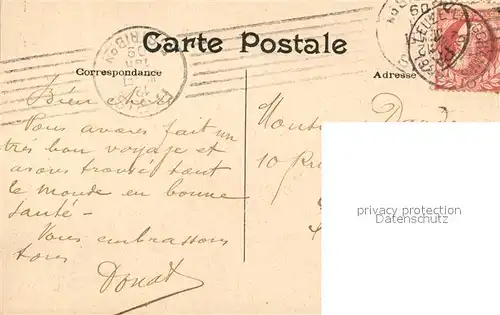 Carte Postale
Correspondance
Adresse
Bien chers
Vous avons fait un
très bon voyage et
avons trouvé tout
le monde en bonne
santé -
Vous embrassons
tous
Donat
10 Rue
privacy protection
Datenschutz